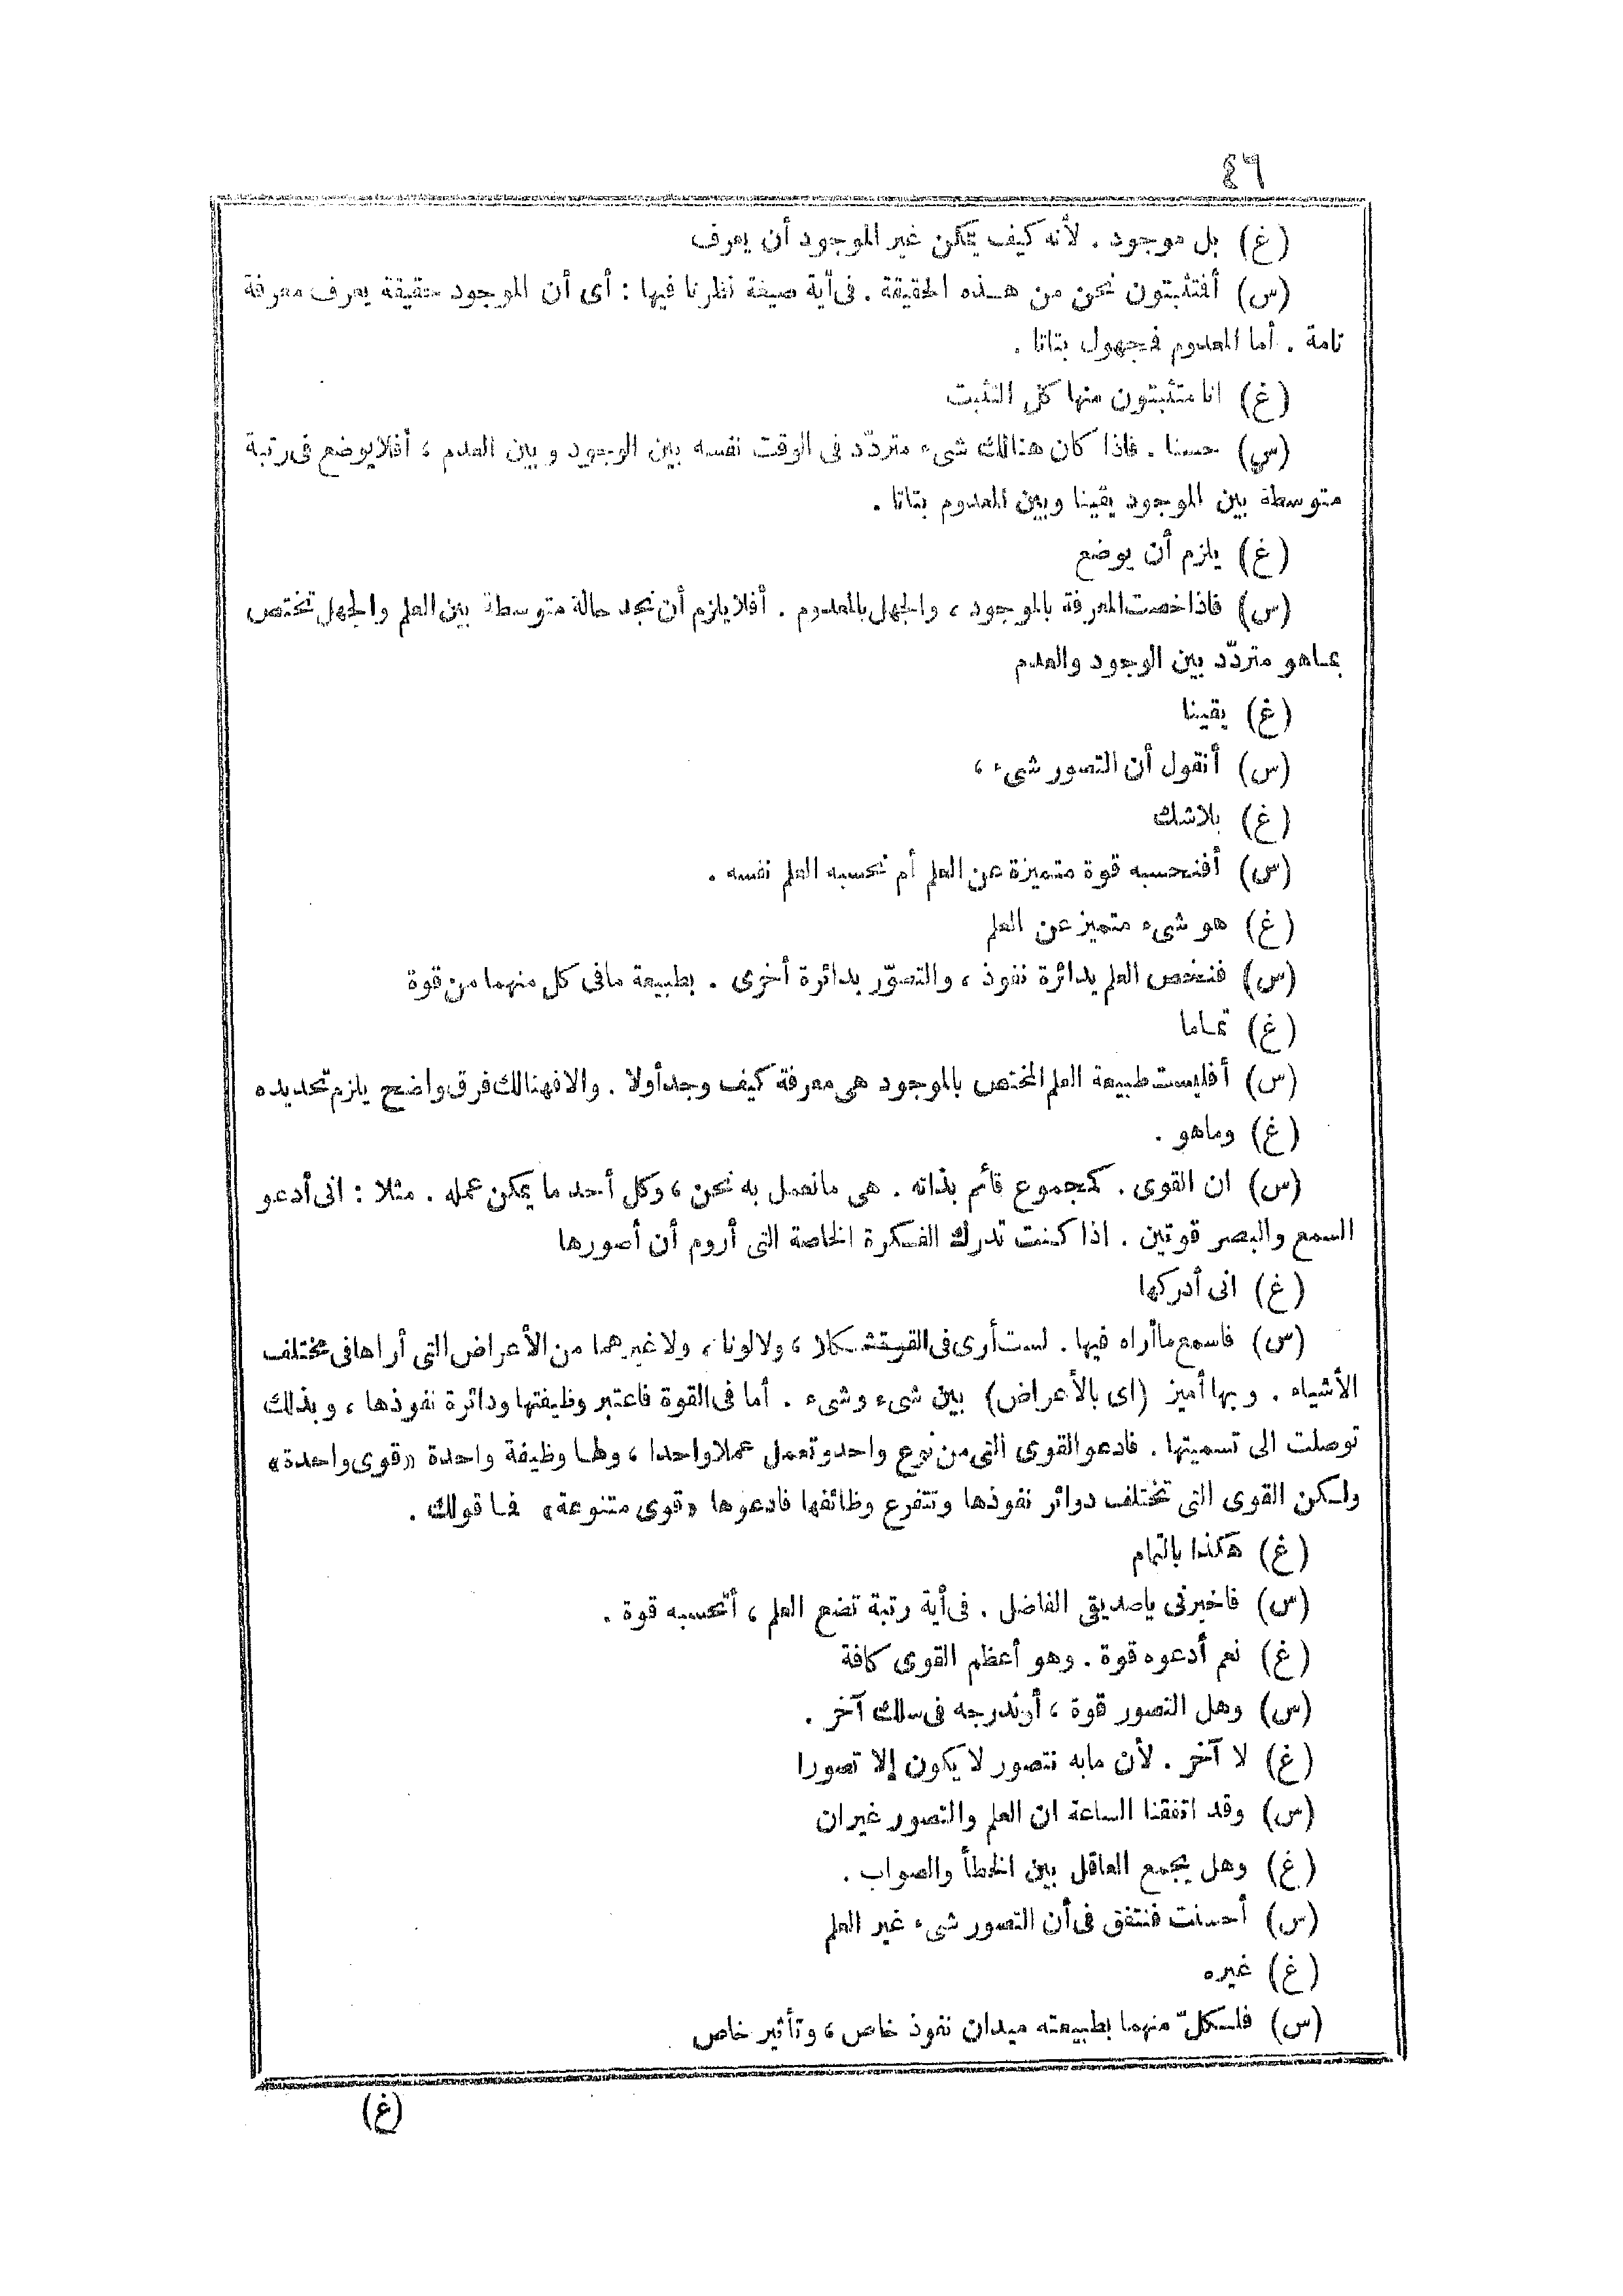 ٤٦
(غ) بل موجود . لأنه كيف يمكن غير الموجود أن يعرف
(س) أفنتثبتون نحن من هذه الحقيقة . فى أية صيغة نظرنا فيها : أى أن الموجود حقيقة يعرف معرفة
تامة . أما المعدوم فمجهول بتاتا .
(غ) انا متثبتون منها كل التثبت
(س) حسنا . فاذا كان هنالك شىء متردّد فى الوقت نفسه بين الوجود وبين العدم ، أفلا يوضع فى رتبة
متوسطة بين الموجود يقينا وبين المعدوم بتاتا .
(غ) يلزم أن يوضع
(س) فاذا خصت المعرفة بالموجود ، والجهل بالمعدوم . أفلا يلزم أن نجد حالة متوسطة بين العلم والجهل تختص
بما هو متردّد بين الوجود والعدم
(غ) يقينا
(س) أنقول أن التصور شىء ،
(غ) بلاشك
(س) أفنحسبه قوة متميزة عن العلم أم نحسبه العلم نفسه .
(غ) هو شىء متميز عن العلم
(س) فنخص العلم بدائرة نفوذ ، والتصوّر بدائرة أخرى . بطبيعة مافى كل منهما من قوة
(غ) تماما
(س) أفليست طبيعة العلم المختص بالموجود هى معرفة كيف وجد أولا . والا فهنالك فرق واضح يلزم تحديده
(غ) وماهو .
(س) ان القوى . كمجموع قائم بذاته . هى مانعمل به نحن ، وكل أحد ما يمكن عمله . مثلا : انى أدعو
السمع والبصر قوتين . اذا كنت تدرك الفكرة الخاصة التى أروم أن أصورها
(غ) انى أدركها
(س) فاسمع ماأراه فيها . لست أرى فى القوة شكلا ، ولا لونا ، ولا غيرهما من الأعراض التى أراها فى مختلف
الأشياء . وبها أميز (اى بالأعراض) بين شىء وشىء . أما فى القوة فاعتبر وظيفتها ودائرة نفوذها ، وبذلك
توصلت الى تسميتها . فادعو القوى التى من نوع واحد وتعمل عملا واحدا ، ولها وظيفة واحدة «قوى واحدة»
ولكن القوى التى تختلف دوائر نفوذها وتتفرع وظائفها فادعوها «قوى متنوعة» فما قولك .
(غ) هكذا بالتمام
(س) فاخبرنى ياصديقى الفاضل . فى أية رتبة تضع العلم ، أتحسبه قوة .
(غ) نعم أدعوه قوة . وهو أعظم القوى كافة
(س) وهل التصور قوة ، أو ندرجه فى سلك آخر .
(غ) لا آخر . لأن مابه نتصور لا يكون إلا تصورا
(س) وقد اتفقنا الساعة ان العلم والتصور غيران
(غ) وهل يجمع العاقل بين الخطأ والصواب .
(س) أحسنت فنتفق فى أن التصور شىء غير العلم
(غ) غيره
(س) فلكلّ منهما بطبيعته ميدان نفوذ خاص ، وتأثير خاص
(غ)